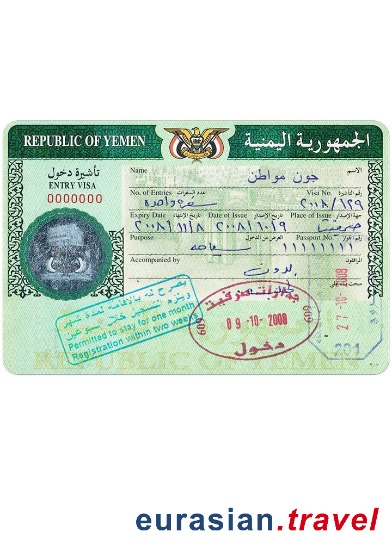 REPUBLIC OF YEMEN الجمهورية اليمنية
تأشرة دخول
ENTRY VISA
0000000
Name الاسم
جون مواطن
No. of Entries عدد السفرات Visa No. رقم التأشرة
سفرة واحدة ٢٠٠٨/١٢٩
Expiry Date تاريخ الإنتهاء Date of Issue تاريخ الإصدار Place of Issue جهة الإصدار
٢٠٠٨/١١/٨ ٢٠٠٨/١٠/٩
Purpose الغرض من الدخول Passport No. رقم الجواز
سياحة ١١١١١١١١
Accompanied by المرافقون
بدون
يصرح له بالإقامة لمدة شهر
ويلزم التسجيل خلال أسبوعين
Permitted to stay for one month
Registration within two weeks
609 09-10-2008 609
دخول
27-10-2008
REPUBLIC OF YEMEN
eurasian.travel